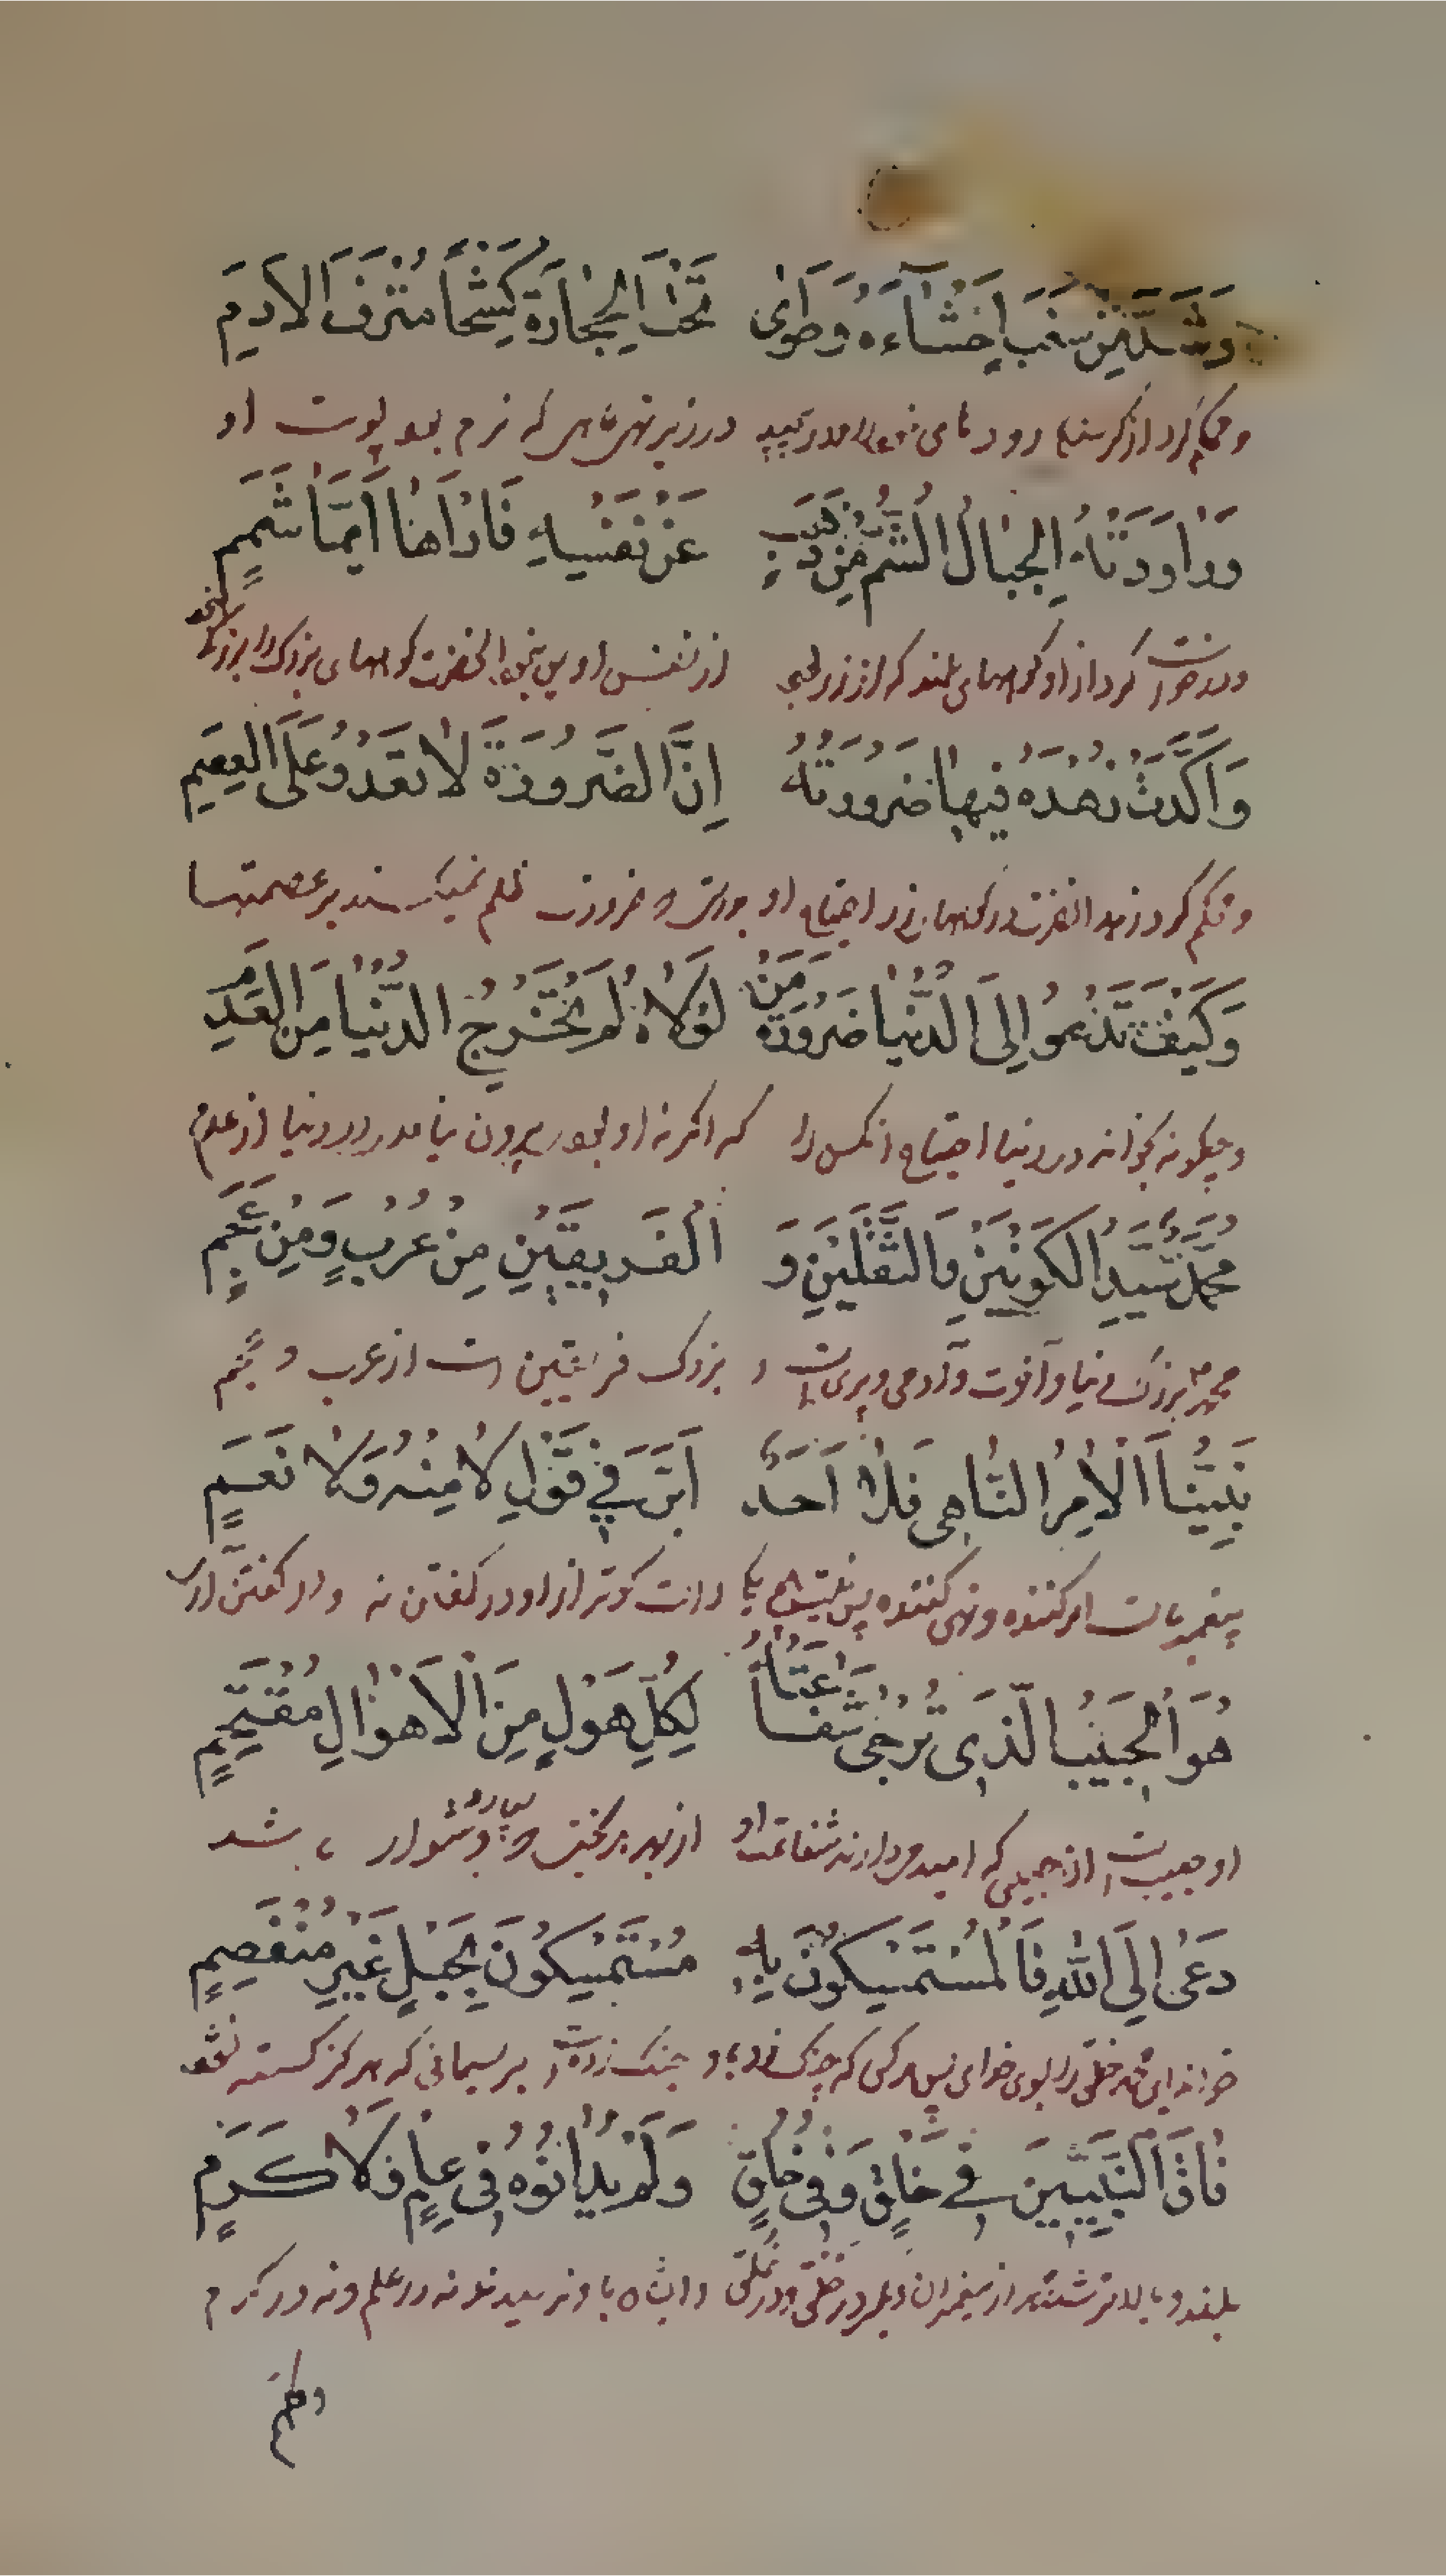 وَشَدَّ مِنْ سَغَبٍ اَحْشَآءَهُ وَطَوٰى تَحْتَ الْحِجَارَةِ كَشْحًا مُتْرَفَ الْاَدَمِ
در زیر تهی‌گاهی که نرم بود پوست او
وَرَاوَدَتْهُ الْجِبَالُ الشُّمُّ مِنْ ذَهَبٍ عَنْ نَفْسِهِ فَاَرَاهَا اَيَّمَا شَمَمٍ
کرد از او کوههای بلند که از زر از نفس او پس کوههای بزرک را
وَاَكَّدَتْ زُهْدَهُ فِيهَا ضَرُورَتُهُ اِنَّ الضَّرُورَةَ لَا تَعْدُو عَلَى الْعِصَمِ
و محکم کرد زهد احتیاج او ضرورت ظلم نمیکند بر عصمتها
وَكَيْفَ تَدْعُوا اِلَى الدُّنْيَا ضَرُورَةُ مَنْ لَوْلَاهُ لَمْ تُخْرَجِ الدُّنْيَا مِنَ الْعَدَمِ
و چکونه بخواند در دنیا احتیاج انکس را که اکر نه او بیرون نیامدی دنیا از عدم
مُحَمَّدٌ سَيِّدُ الْكَوْنَيْنِ وَالثَّقَلَيْنِ وَ الْفَرِيقَيْنِ مِنْ عُرْبٍ وَمِنْ عَجَمٍ
محمد بزرک دنیا و آخرت و آدمی و پری است و بزرک فریقین است از عرب و عجم
نَبِيُّنَا الْاٰمِرُ النَّاهِى فَلَا اَحَدٌ اَبَرَّ فِي قَوْلِ لَا مِنْهُ وَلَا نَعَمٍ
پیغمبر ماست امر کننده و نهی کننده پس نیست از او در کفتن نه و در کفتن آری
هُوَ الْحَبِيبُ الَّذِى تُرْجٰى شَفَاعَتُهُ لِكُلِّ هَوْلٍ مِنَ الْاَهْوَالِ مُقْتَحِمٍ
او حبیب است که امید دارند شفاعت او از بهر هر سختی دشوار باشد
دَعٰى اِلَى اللهِ فَالْمُسْتَمْسِكُونَ بِهِ مُسْتَمْسِكُونَ بِحَبْلٍ غَيْرِ مُنْفَصِمٍ
خلق را بسوی خدای پس هر کس که چنک زد باو چنک زده است بریسمانی که هرکز کسسته نشود
فَاقَ النَّبِيِّينَ فِي خَلْقٍ وَفِي خُلُقٍ وَلَمْ يُدَانُوهُ فِي عِلْمٍ وَلَا كَرَمٍ
بلند و بالاتر از پیغمبران در خلق و در خلق باو نرسیدند نه در علم و نه در کرم
وکلهم